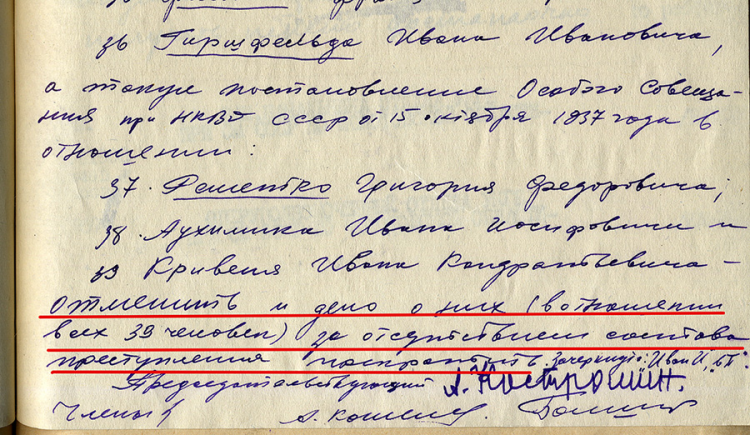 36 Гиршфельда Ивана Ивановича,
а также постановление Особого Совеща-
ния при НКВД СССР от 15 октября 1937 года в
отношении:
37. Фещенко Григория Федоровича;
38. Лухимика Ивана Иосифовича и
39 Кривеня Ивана Кондратьевича –
отменить и дело о них (в отношении
всех 39 человек) за отсутствием состава
преступления прекратить. Зачеркнуто:
Председательствующий А. Костромин.
Члены